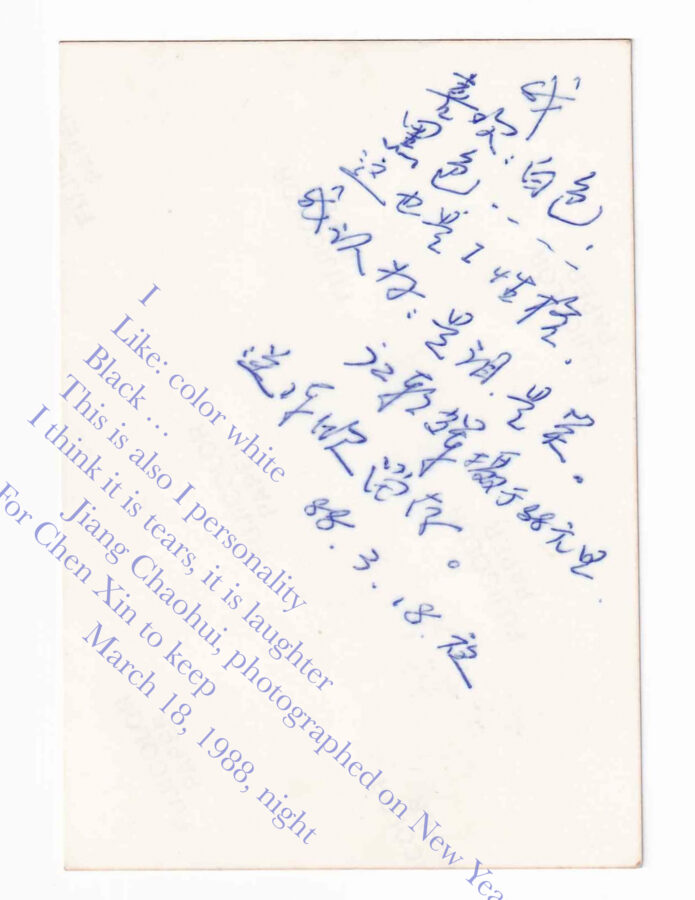 我
喜欢:白色.
黑色....
这也是I性格.
我认为:是泪.是笑。
江朝辉摄于88元旦.
送陈欣留存。
88.3.18.夜
I
Like: color white
Black ...
This is also I personality
I think it is tears, it is laughter
Jiang Chaohui, photographed on New Yea
For Chen Xin to keep
March 18, 1988, night